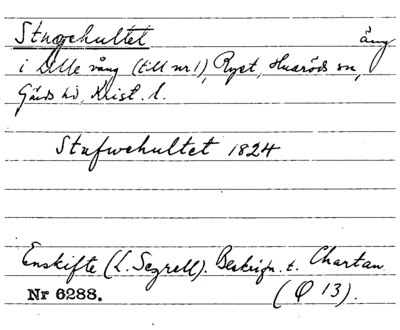 Stuvehultet äng
i Lille vång (till nr 1), Ryet, Huaröds sn,
Gärds hd, Krist. l.
Stufwehultet 1824
Enskifte (L. Segrell). Beskrifn. t. Chartan
Nr 6288. (Q 13).